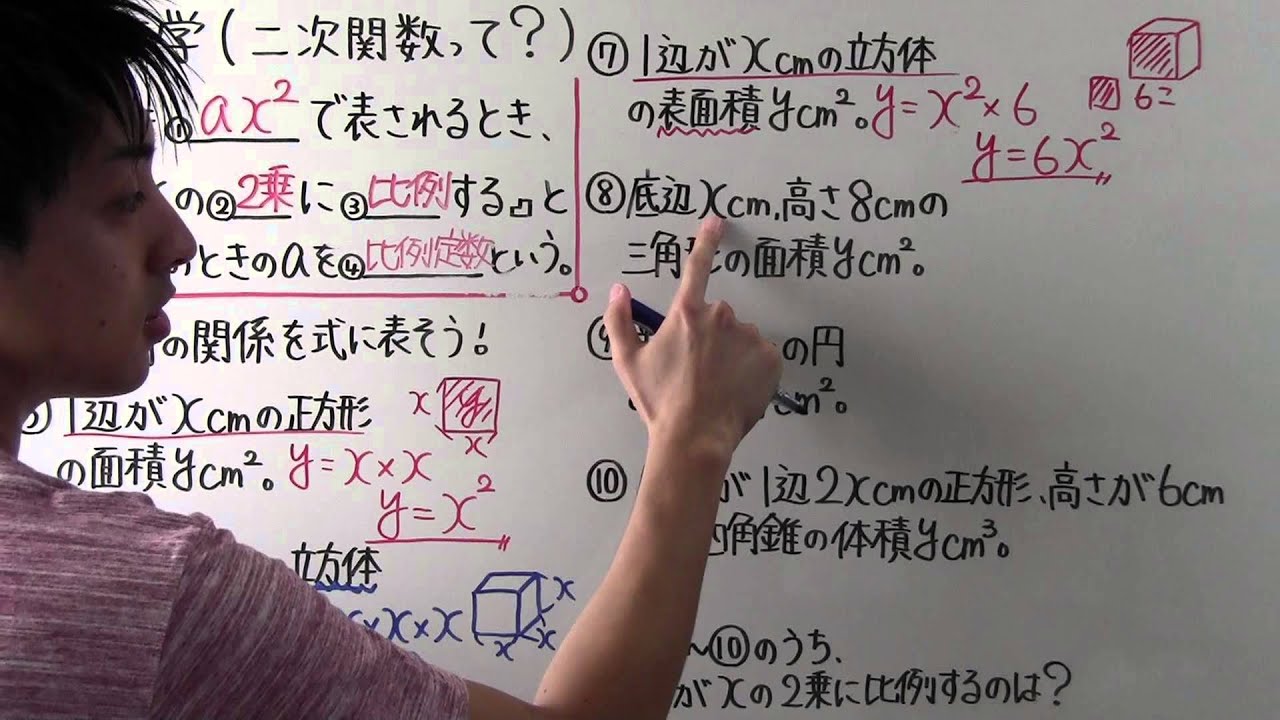 学(二次関数って?)
① ax² で表されるとき、
の②2乗に③比例する』と
のときのaを④比例定数という。
の関係を式に表そう!
1辺がxcmの正方形
の面積ycm²。y=x×x
y=x²
x
y
x
立方体
x×x
x
x
x
⑦1辺がxcmの立方体
の表面積ycm²。y=x²×6
y=6x²
6こ
⑧底辺xcm、高さ8cmの
三角形の面積ycm²。
の円
cm²。
⑩が1辺2xcmの正方形、高さが6cm
角錐の体積ycm³。
~⑩のうち、
がxの2乗に比例するのは?